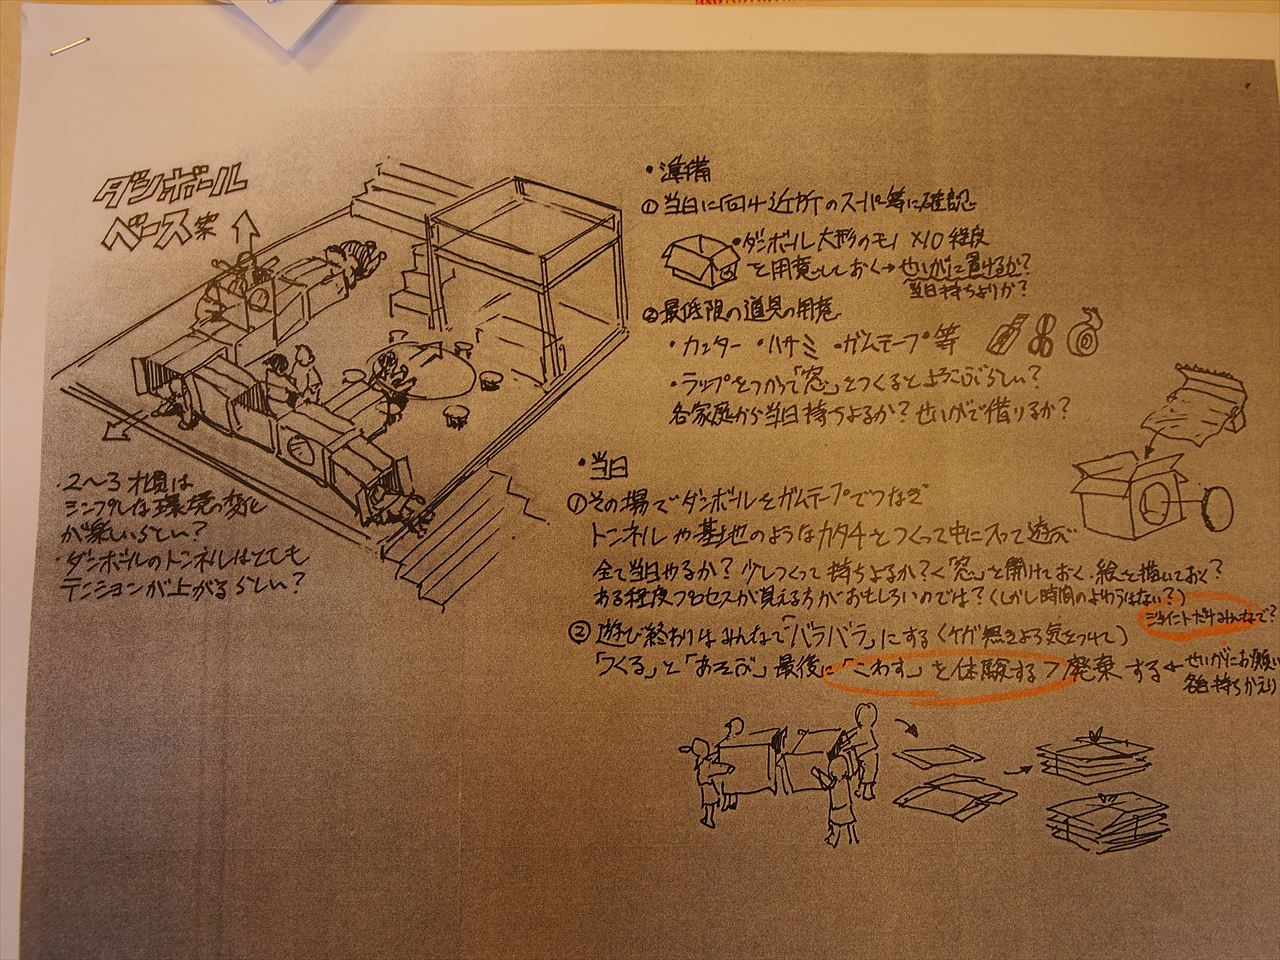 ダンボール
ベース案
・2〜3才児は
シンプルな環境の変化
が楽しいらしい?
・ダンボールのトンネルはとても
テンションが上がるらしい?
・準備
① 当日に向け近所のスーパー等に確認
・ダンボール大形のモノ ×10程度
を用意しておく→せいがに置けるか?
当日持ちよりか?
② 最低限の道具の用意
・カッター ・ハサミ ・ガムテープ 等
・ラップをつかって「窓」をつくるとよろこぶらしい?
各家庭から当日持ちよるか? せいがで借りるか?
・当日
① その場でダンボールをガムテープでつなぎ
トンネルや基地のようなカタチをつくって中に入って遊ぶ
全て当日やるか? 少しつくって持ちよるか?<「窓」を開けておく・絵を描いておく?
ある程度プロセスが見える方がおもしろいのでは?(しかし時間のよゆうはない?)
ジョイントだけみんなで?
② 遊び終わりはみんなで「バラバラ」にする(ケガ無きよう気をつけて)
「つくる」と「あそぶ」最後に「こわす」を体験する>廃棄する←せいがにお願い
各自持ちかえり